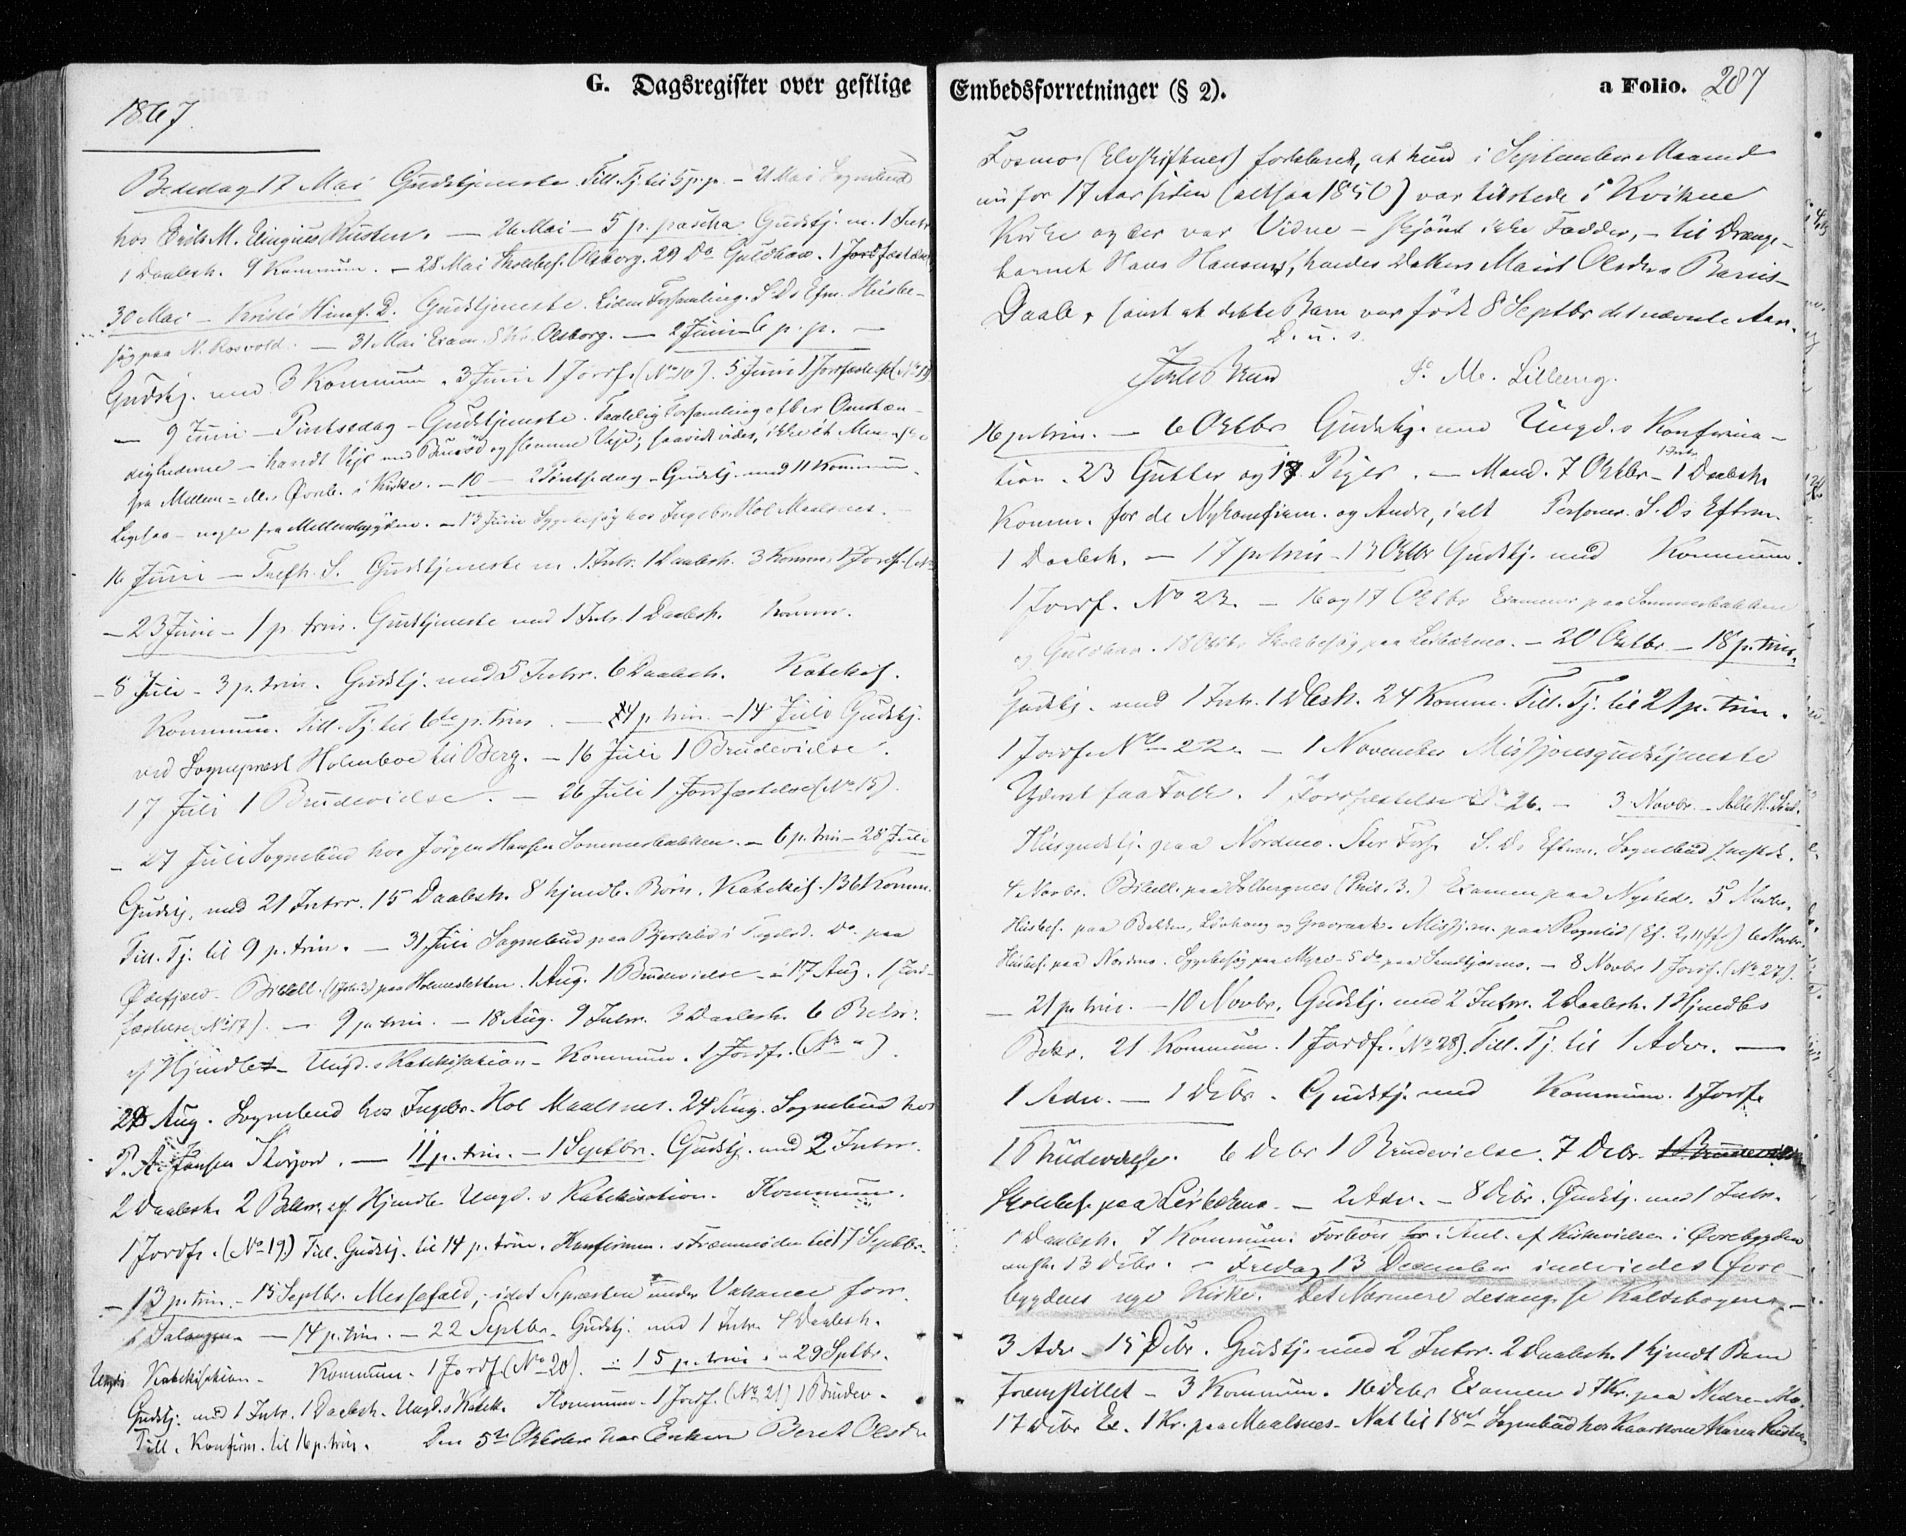 G. Dagsregister over gestlige Embedsforretninger (§ 2).
a Folio. 287
1867.
Bededag 17 Mai Gudstjeneste. Till. Tj. til 5 p. p. – 21 Mai Sognebud
hos M. Rusten. – 26 Mai – 5 p. pascha Gudstj. m. 1 Intr.
1 Daabsh. 9 Kommun. – 28 Mai Skolebes. Olsborg. 29 Do Guldhav. 1 Jordfæstelse
30 Mai – Kristi Himf. D. Gudstjeneste. Liden Forsamling. S. D. Efm. Husbe-
søg paa N. Rosvold. – 31 Mai Exam. Olsborg. – 2 Juni 6 p. p. –
Gudstj. med 3 Kommun. 3 Juni 1 Jordf. (No 10). 5 Juni 1 Jordfæstelse
– 9 Juni – Pintsedag – Gudstjeneste. Taalelig Forsamling efter Omstæn-
dighederne – haardt Veir med og slemme Veje; saavidt vides, ikke ét Men
fra Mellem- M. Øvreb. i Kirke. – 10 – 2 Pintsedag – Gudstj. med 11 Kommun.
Ligesaa – nogle fra Mellembygden. – 13 Juni Sygebesøg hos Ingebr. Hol Maalsnes.
16 Juni – Trefh. S. Gudstjeneste m. 1 Intr. 1 Daabsh. 3 Komm. 1 Jordf. (No
– 23 Juni – 1 p. trin. Gudstjeneste med 1 Intr. 1 Daabsh. Komm.
– 8 Juli – 3 p. trin. Gudstj. med 5 Intr. 6 Daabsh. Katekis.
Kommun. Till. Tj. til 6te p. trin. – 4 p. trin. – 14 Juli Gudstj.
ved Sognepræst Holmboe til Berg. – 16 Juli 1 Brudevielse.
17 Juli 1 Brudevielse. – 26 Juli 1 Jordfæstelse (No 15).
– 27 Juli Sognebud hos Jörgen Hansen Sommerbakken. – 6 p. trin – 28 Juli
Gudstj. med 21 Intrr. 15 Daabsh. 8 hjmdb. Börn. Katekis. 136 Komm.
Till. Tj. til 9 p. trin. – 31 Juli Sognebud paa Bjerkelid i Do. paa
Ødefjeld. Bibell. paa Holmesletten. 1 Aug. 1 Brudevielse – 17 Aug. 1 Jord-
fæstelse (No 17). – 9 p. trin. – 18 Aug. 9 Intrr. 3 Daabsh. 6 Bekr.
af Hjmdbt – Ungd.s Katekisation – Kommun. 1 Jordf. (No ").
Aug. Sognebud hos Ingebr. Hol Maalsnes. 24 Aug. Sognebud hos
P. A. Jansen – 11 p. trin. – 1 Septbr. Gudstj. med 2 Intrr.
2 Daabsh. 2 Bekr. af Hjmdb. Ungd.s Katekisation. Kommun.
1 Jordf. (No 19) Till. Gudstj. til 14 p. trin. Konfirman.s Fremmøden til 17 Septbr.
– 13 p. trin. – 15 Septbr. Messefald, idet Sepræsten under Vakance forr.
i Salangen. – 14 p. trin. – 22 Septbr. Gudstj. med 1 Intr. 4 Daabsh.
Ungds Katekisation – Kommun. 1 Jordf. (No 20). – 15 p. trin. – 29 Sptbr.
Gudstj. med 1 Intr. 1 Daabsh. Ungd.s Katek. Kommun. 1 Jordf. (No 21) 1 Brudev.
Till. Konfirm. til 16 p. trin. Den 5te Oktober har Enken Beret Olsdr.
Fosmo forklaret, at hun i September Maaned
nu for 17 Aar siden (altsaa 1850) var tilstede i Kvikne
Kirke og der var Vidne – skjönt ikke Fadder, – til Drenge-
barnet Hans Hansens, hendes Datters Marit Olsdr.s Barns
Daab, samt at dette Barn var født 8 Septbr det nævnte Aar.
D. u. s.
16 p. trin. – 6 Oktbr Gudstj. med Ungd.s Konfirma-
tion. 23 Gutter og 17 Piger. – Mand. 7 Oktbr – 1 Intr. 1 Daabsh.
Komm. for de Nykonfirm. og Andre, ialt Personer. S. D. Eftm.
1 Daabsh. – 17 p. trin. – 13 Oktbr Gudstj. med Kommun.
1 Jordf. No 23. – 16 og 17 Oktbr Examener paa Sommerbakken
og Guldhav. 18 Oktbr Skolebesøg paa – 20 Oktbr. – 18 p. trin.
Gudstj. med 1 Intr. 1 Dbsh. 24 Komm. Till. Tj. til 21 p. trin.
1 Jordf. No 22. – 1 November Missjonsgudstjeneste
Yderst faa Folk. 1 Jordfæstelse No 26. – 3 Novbr. – Alle H.
Husgudstj. paa Nordmo. Stor Fors. S. D. Eftm. Sognebud
4 Novbr. Bibell. paa Solbergnes Examen paa Nysted. 5 Novbr.
Husbes. paa Bakken, og Missj. m. paa Rognlid 6 Novbr.
Husbes. paa Nordmo. Sygebesøg paa Myre – 5 Do paa – 8 Novbr 1 Jordf. (No 27).
– 21 p. trin. – 10 Novbr. Gudstj. med 2 Intrr. 2 Daabsh. 1 Hjmdbs
Bekr. 21 Kommun. 1 Jordf. (No 28). Till. Tj. til 1 Adv. –
1 Adv. – 1 Debr. Gudstj. med Kommun. 1 Jordf.
1 Brudevielse. 6 Debr 1 Brudevielse. 7 Debr. 1 Brudevielse
Skolebes. paa – 2 Adv. – 8 Debr. Gudstj. med 1 Intr.
1 Daabsh. 7 Kommun. Forbön for i Anl. af Kirkevielsen i Øvrebygden
13 Debr. – Fredag 13 December indviedes Øvre-
bygdens nye Kirke. Det Nærmere desang. se Kaldsbogen.
3 Adv – 15 Debr. Gudstj. med 2 Intrr. 2 Daabsh. 1 hjmdt Barn
fremstillet – 3 Kommun. 16 Debr Examen i 7 Kr. paa Nedre-Mo.
17 Debr Ex. 1 Kr. paa Maalsnes – Nat til 18de Sognebud hos Kaarkone Karen